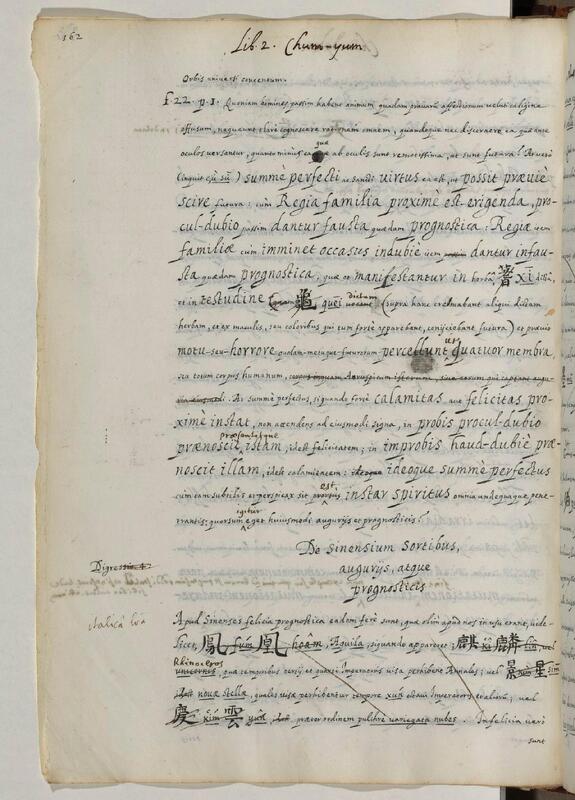 162
Lib. 2. Chum-yum
Orbis universi concentum.
f. 22. p. 1. Quoniam homines passim habent animum quadam pravarum affectionum veluti caligine
offusum, nequeunt clarè cognoscere rationem, quandoque nec discernere ea quæ ante
oculos versantur, quanto minus ea quæ ab oculis sunt remotissima, ut sunt futura! At verò
(inquit çu su) summè perfecti ac Sancti virtus ea est, ut possit præviè
scire futura: cum Regia familia proximè est erigenda, pro-
cul-dubio passim dantur fausta quædam prognostica: Regiæ item
familiæ cum imminet occasus indubiè item dantur infau-
sta quædam prognostica, quæ manifestantur in herba 蓍 xi dicta,
et in testudine 龜 quei dictum (supra hanc cremabant aliqui dictam
herbam, et ex maculis, seu coloribus qui tum fortè apparebant, conijciebant futura) et prævio
motu-seu-horrore quodam-metuque-futurorum percelluntur quatuor membra,
seu totum corpus humanum,
At summè perfectus, siquando fortè calamitas aut felicitas pro-
ximè instat, non attendens ad eiusmodi signa, in probis procul-dubio
prænoscit præsentitque istam, idest felicitatem; in improbis haud-dubiè præ-
noscit illam, idest calamitatem: ideoque summè perfectus
cum tam subtilis et perspicax sit prorsus est instar spiritus omnia undequaque pene-
trantis; quorsum igitur eget huiusmodi augurijs et prognosticis?
De Sinensium Sortibus,
augurijs, atque
prognosticis
Digressio 4.
italicâ
Apud Sinenses felicia prognostica eadem ferè sunt, quæ olim apud nos in usu erant, vide-
licet, 鳳 fúm 凰 hoâm, Aquila, siquando appareret; 麒 ki 麟 lin, vel
Rhinoceros
unicornus, qua temporibus Imperatoris visa perhibent Annales; vel 景 kim 星 sim
novæ stellæ, quales visæ perhibentur tempore xun etiam Imperatoris; vel
慶 kim 雲 yun, præter ordinem pulchrè variegatæ nubes. Infelicia verò
sunt